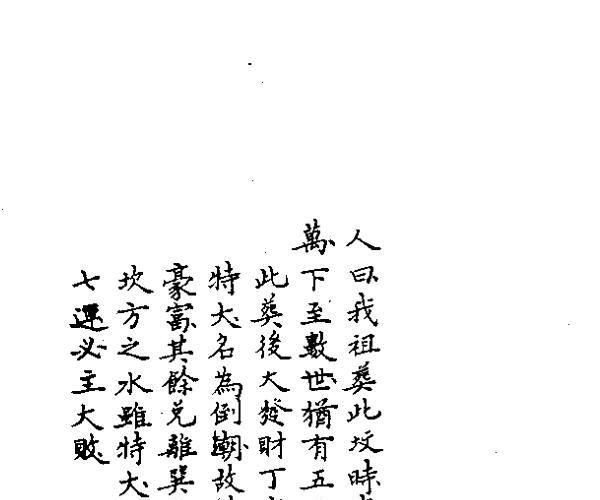 人曰我祖葬此坟時
萬下至數世猶有五
此葬後大發財丁
特大名為倒潮故
豪富其餘兌離巽
坎方之水雖特大
七運必主大敗